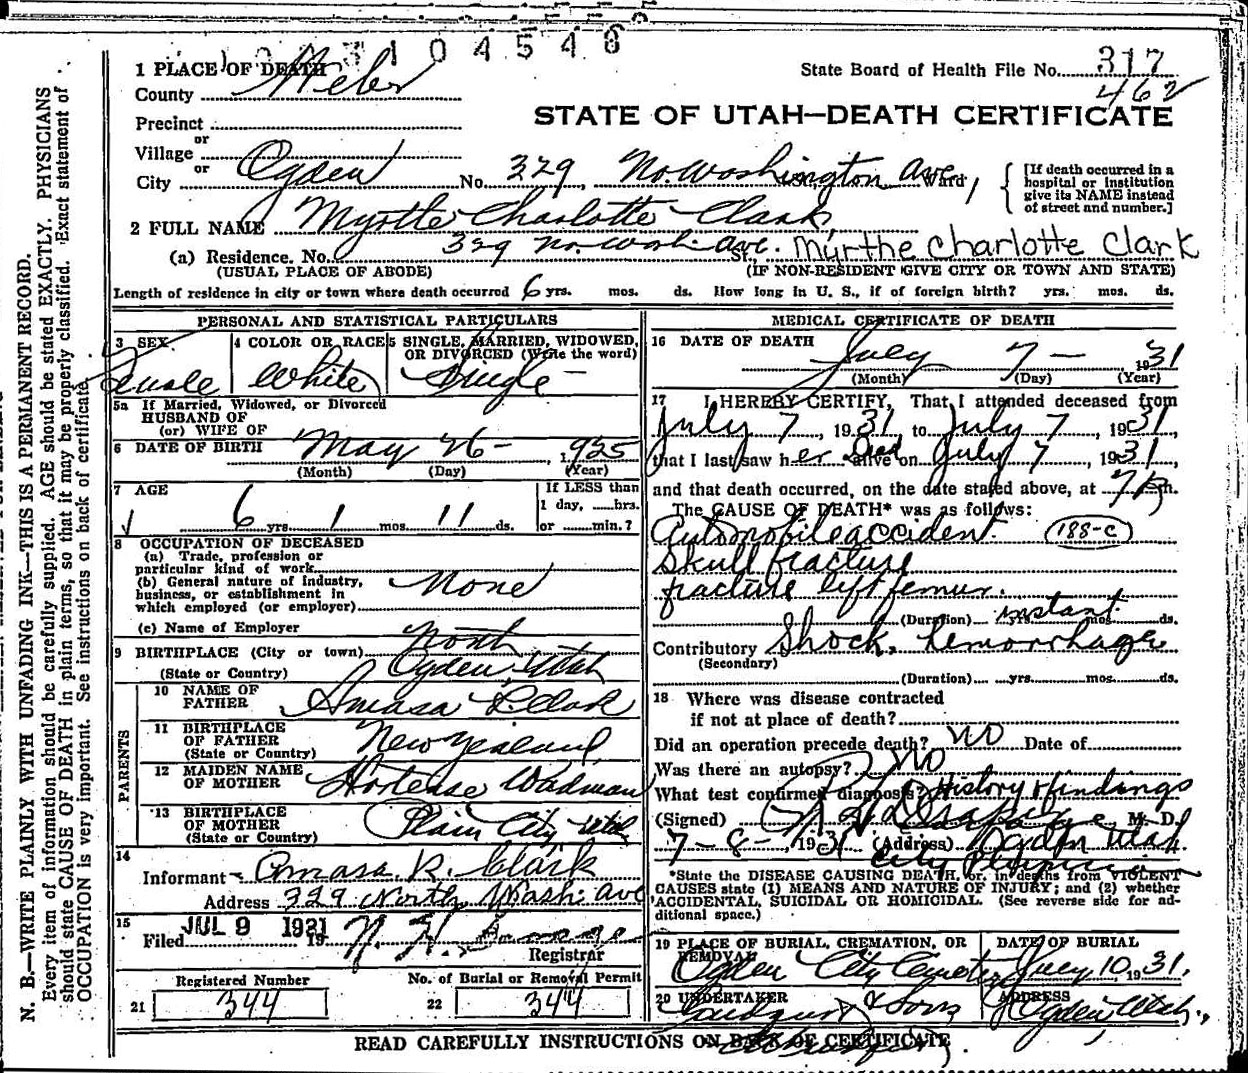 3104548
1 PLACE OF DEATH
County Weber
State Board of Health File No. 317
462
STATE OF UTAH—DEATH CERTIFICATE
Precinct
or
Village
or
City Ogden No. 329, No. Washington Ave. Ward
[If death occurred in a hospital or institution give its NAME instead of street and number.]
2 FULL NAME Myrtle Charlotte Clark,
(a) Residence. No. 329 No. Wash. Ave. St. Myrthe Charlotte Clark
(USUAL PLACE OF ABODE) (IF NON-RESIDENT GIVE CITY OR TOWN AND STATE)
Length of residence in city or town where death occurred 6 yrs. mos. ds. How long in U. S., if of foreign birth? yrs. mos. ds.
PERSONAL AND STATISTICAL PARTICULARS
3 SEX 4 COLOR OR RACE 5 SINGLE, MARRIED, WIDOWED, OR DIVORCED (Write the word)
Female White Single
5a If Married, Widowed, or Divorced
HUSBAND OF
(or) WIFE OF
6 DATE OF BIRTH May 26- 1925
(Month) (Day) (Year)
7 AGE If LESS than
1 day, hrs.
6 yrs. 1 mos. 11 ds. or min.?
8 OCCUPATION OF DECEASED
(a) Trade, profession or
particular kind of work
(b) General nature of industry,
business, or establishment in
which employed (or employer) None
(c) Name of Employer
9 BIRTHPLACE (City or town) North
(State or Country) Ogden, Utah
PARENTS
10 NAME OF FATHER Amasa R. Clark
11 BIRTHPLACE OF FATHER (State or Country) New Zealand,
12 MAIDEN NAME OF MOTHER Hortense Wadman
13 BIRTHPLACE OF MOTHER (State or Country) Plain City Utah
14
Informant Amasa R. Clark
Address 329 North Wash. Ave
15 JUL 9 1931
Filed 19
Registrar
Registered Number No. of Burial or Removal Permit
21 344 22 344
MEDICAL CERTIFICATE OF DEATH
16 DATE OF DEATH July 7- 1931
(Month) (Day) (Year)
17 I HEREBY CERTIFY, That I attended deceased from
July 7, 1931 to July 7, 1931,
that I last saw her Dead alive on July 7, 1931,
and that death occurred, on the date stated above, at 7 P m.
The CAUSE OF DEATH* was as follows:
Automobile accident. 188-c
Skull fracture
fracture left femur.
(Duration) yrs. instant mos. ds.
Contributory Shock, hemorrhage
(Secondary)
(Duration) yrs. mos. ds.
18 Where was disease contracted
if not at place of death?
Did an operation precede death? NO Date of
Was there an autopsy? No
What test confirmed diagnosis? History & findings
(Signed) M. D.
7-8-, 1931 (Address) Ogden Utah
City Physician
*State the DISEASE CAUSING DEATH, or, in deaths from VIOLENT
CAUSES state (1) MEANS AND NATURE OF INJURY; and (2) whether
ACCIDENTAL, SUICIDAL OR HOMICIDAL. (See reverse side for ad-
ditional space.)
19 PLACE OF BURIAL, CREMATION, OR REMOVAL DATE OF BURIAL
Ogden City Cemetery July 10, 1931.
20 UNDERTAKER ADDRESS
& Sons Ogden Utah.
READ CAREFULLY INSTRUCTIONS ON BACK OF CERTIFICATE
N. B.—WRITE PLAINLY WITH UNFADING INK—THIS IS A PERMANENT RECORD.
Every item of information should be carefully supplied. AGE should be stated EXACTLY. PHYSICIANS
should state CAUSE OF DEATH in plain terms, so that it may be properly classified. Exact statement of
OCCUPATION is very important. See instructions on back of certificate.